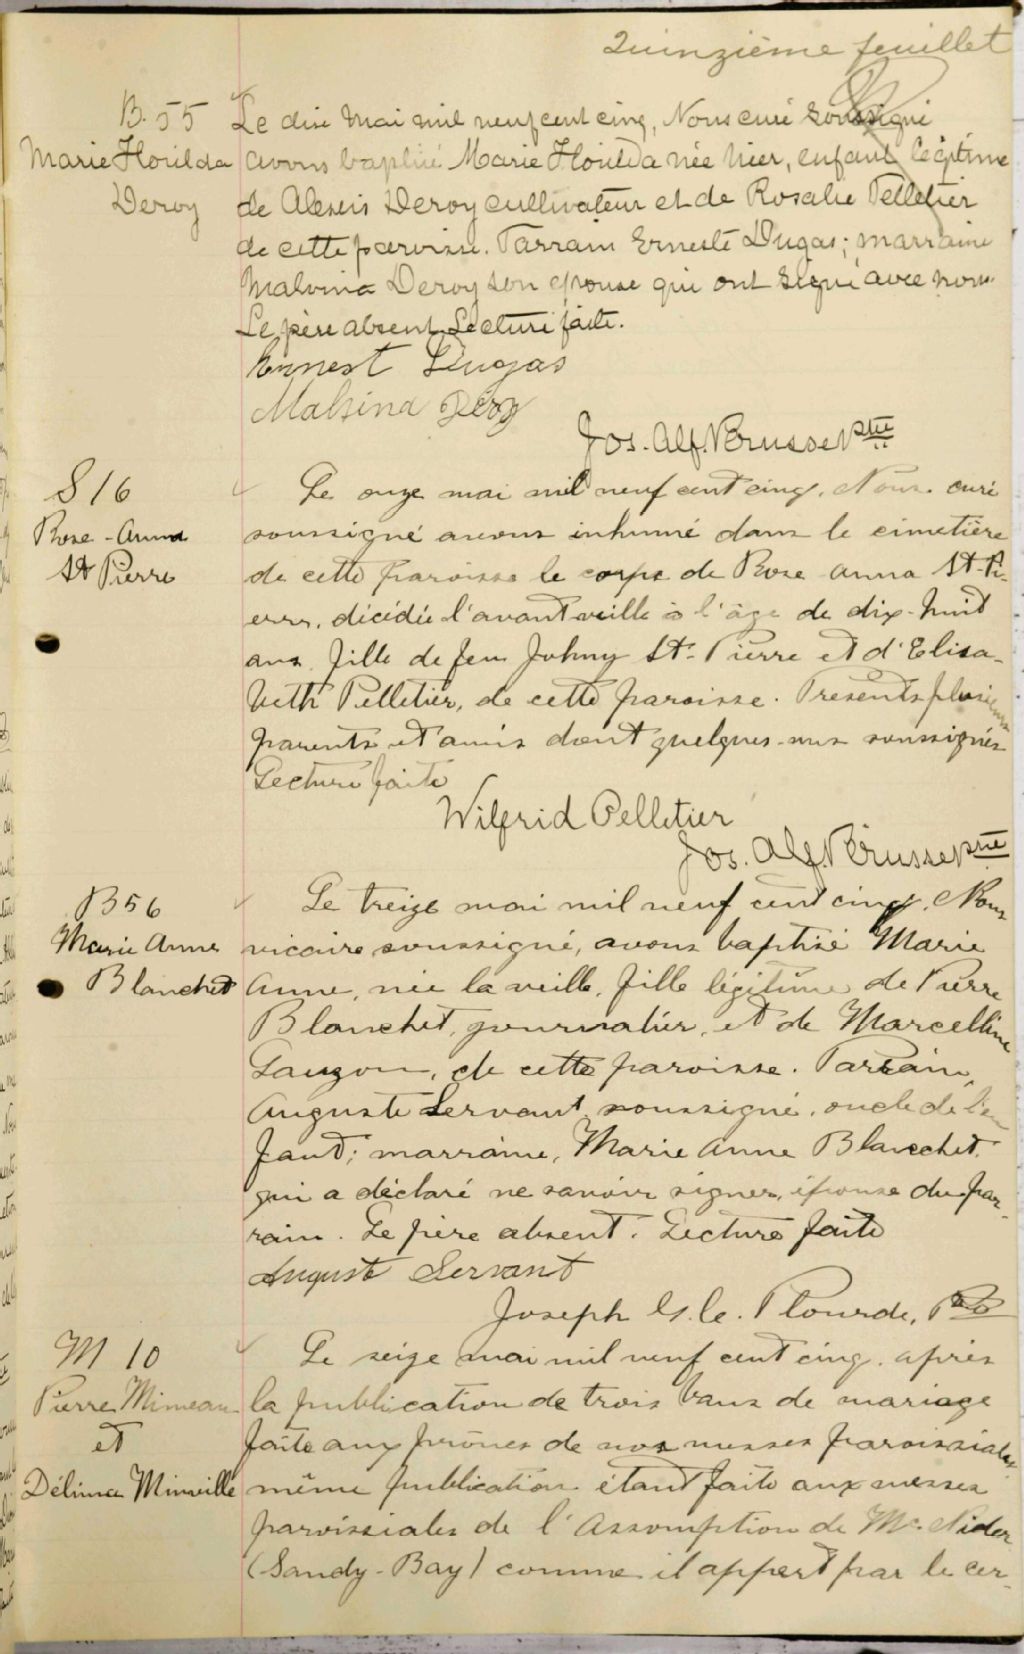 Quinzième feuillet
B. 55
Marie Florilda
Deroy
Le dix mai mil neuf cent cinq, Nous curé soussigné
avons baptisé Marie Florilda née hier, enfant légitime
de Alexis Deroy cultivateur et de Rosalie Pelletier
de cette paroisse. Parrain Erneste Dugas; marraine
Malvina Deroy son épouse qui ont signé avec nous
Le père absent Lecture faite.
Ernest Dugas
Malvina Deroy
Jos. Alf. Brusse Ptre
S 16
Rose-Anna
St Pierre
Le onze mai mil neuf cent cinq, Nous curé
soussigné avons inhumé dans le cimetière
de cette paroisse le corps de Rose anna St-Pi-
erre, décédée l'avant veille à l'âge de dix-huit
ans, fille de feu Johny St-Pierre et d'Elisa-
beth Pelletier, de cette paroisse. Présents plusieurs
parents et amis dont quelques-uns soussignés
Lecture faite
Wilfrid Pelletier
Jos. Alf. Brusse Ptre
B 56
Marie Anne
Blanchet
Le treize mai mil neuf cent cinq, Nous
vicaire soussigné, avons baptisé Marie
Anne, née la veille, fille légitime de Pierre
Blanchet, journalier, et de Marcelline
Gauzon, de cette paroisse. Parrain,
Auguste Servant soussigné, oncle de l'en
fant; marraine, Marie Anne Blanchet,
qui a déclaré ne savoir signer, épouse du par-
rain. Le père absent. Lecture faite
August Servant
Joseph Plourde, Ptre
M 10
Pierre Mimeau
et
Délima Minville
Le seize mai mil neuf cent cinq, après
la publication de trois bans de mariage
faite aux prônes de nos messes paroissiales
même publication étant faite aux messes
paroissiales de l'Assomption de Mc. Nider
(Sandy-Bay) comme il appert par le cer-